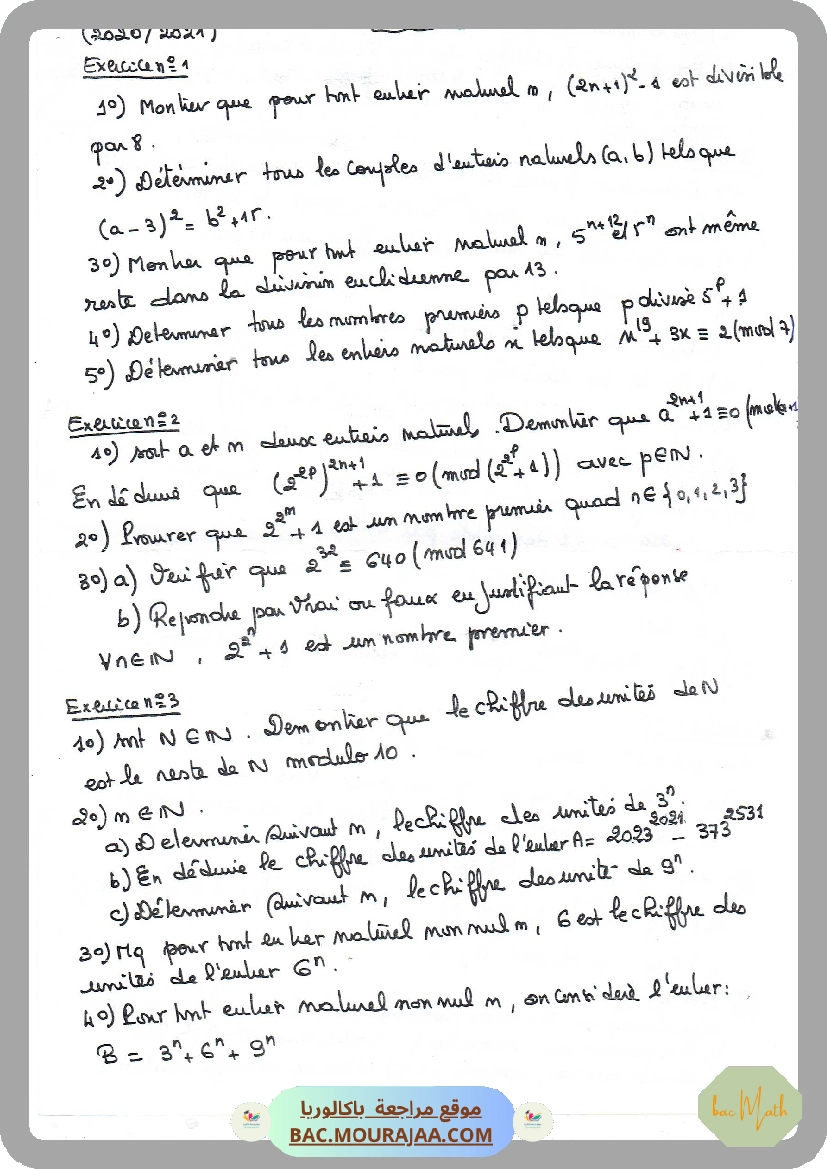 (2020/2021)
Exercice n°1
1°) Montrer que pour tout entier naturel n, (2n+1)² - 1 est divisible
par 8.
2°) Déterminer tous les couples d'entiers naturels (a, b) tels que
(a - 3)² = b² + 15.
3°) Montrer que pour tout entier naturel n, 5^{n+12} et 5^n ont même
reste dans la division euclidienne par 13.
4°) Determiner tous les nombres premiers p tels que p divise 5^p + 1
5°) Déterminer tous les entiers naturels x tels que x^{19} + 3x ≡ 2 (mod 7)
Exercice n°2
1°) soit a et n deux entiers naturels. Demontrer que a^{2n+1} + 1 ≡ 0 (mod a+1
En déduire que (2^{2^p})^{2n+1} + 1 ≡ 0 (mod (2^{2^p} + 1)) avec p ∈ IN.
2°) Prouver que 2^{2^n} + 1 est un nombre premier quad n ∈ {0, 1, 2, 3}
3°) a) Verifier que 2^{32} ≡ 640 (mod 641)
b) Repondre par Vrai ou faux en justifiant la réponse
∀n ∈ IN, 2^{2^n} + 1 est un nombre premier.
Exercice n°3
1°) Soit N ∈ IN. Demontrer que le chiffre des unités de N
est le reste de N modulo 10.
2°) n ∈ IN.
a) Determiner suivant n, le chiffre des unités de 3^n.
b) En déduire le chiffre des unités de l'entier A = 2023^{2021} - 373^{2531}
c) Déterminer suivant n, le chiffre des unité de 9^n.
3°) Mq pour tout entier naturel non nul n, 6 est le chiffre des
unités de l'entier 6^n.
4°) Pour tout entier naturel non nul n, on considère l'entier:
B = 3^n + 6^n + 9^n
موقع مراجعة باكالوريا
BAC.MOURAJAA.COM
bac Math